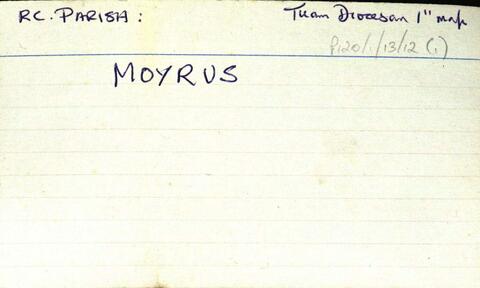 RC. PARISH: Tuam Diocesan 1" map
P120/1/13/12 (1)
MOYRUS